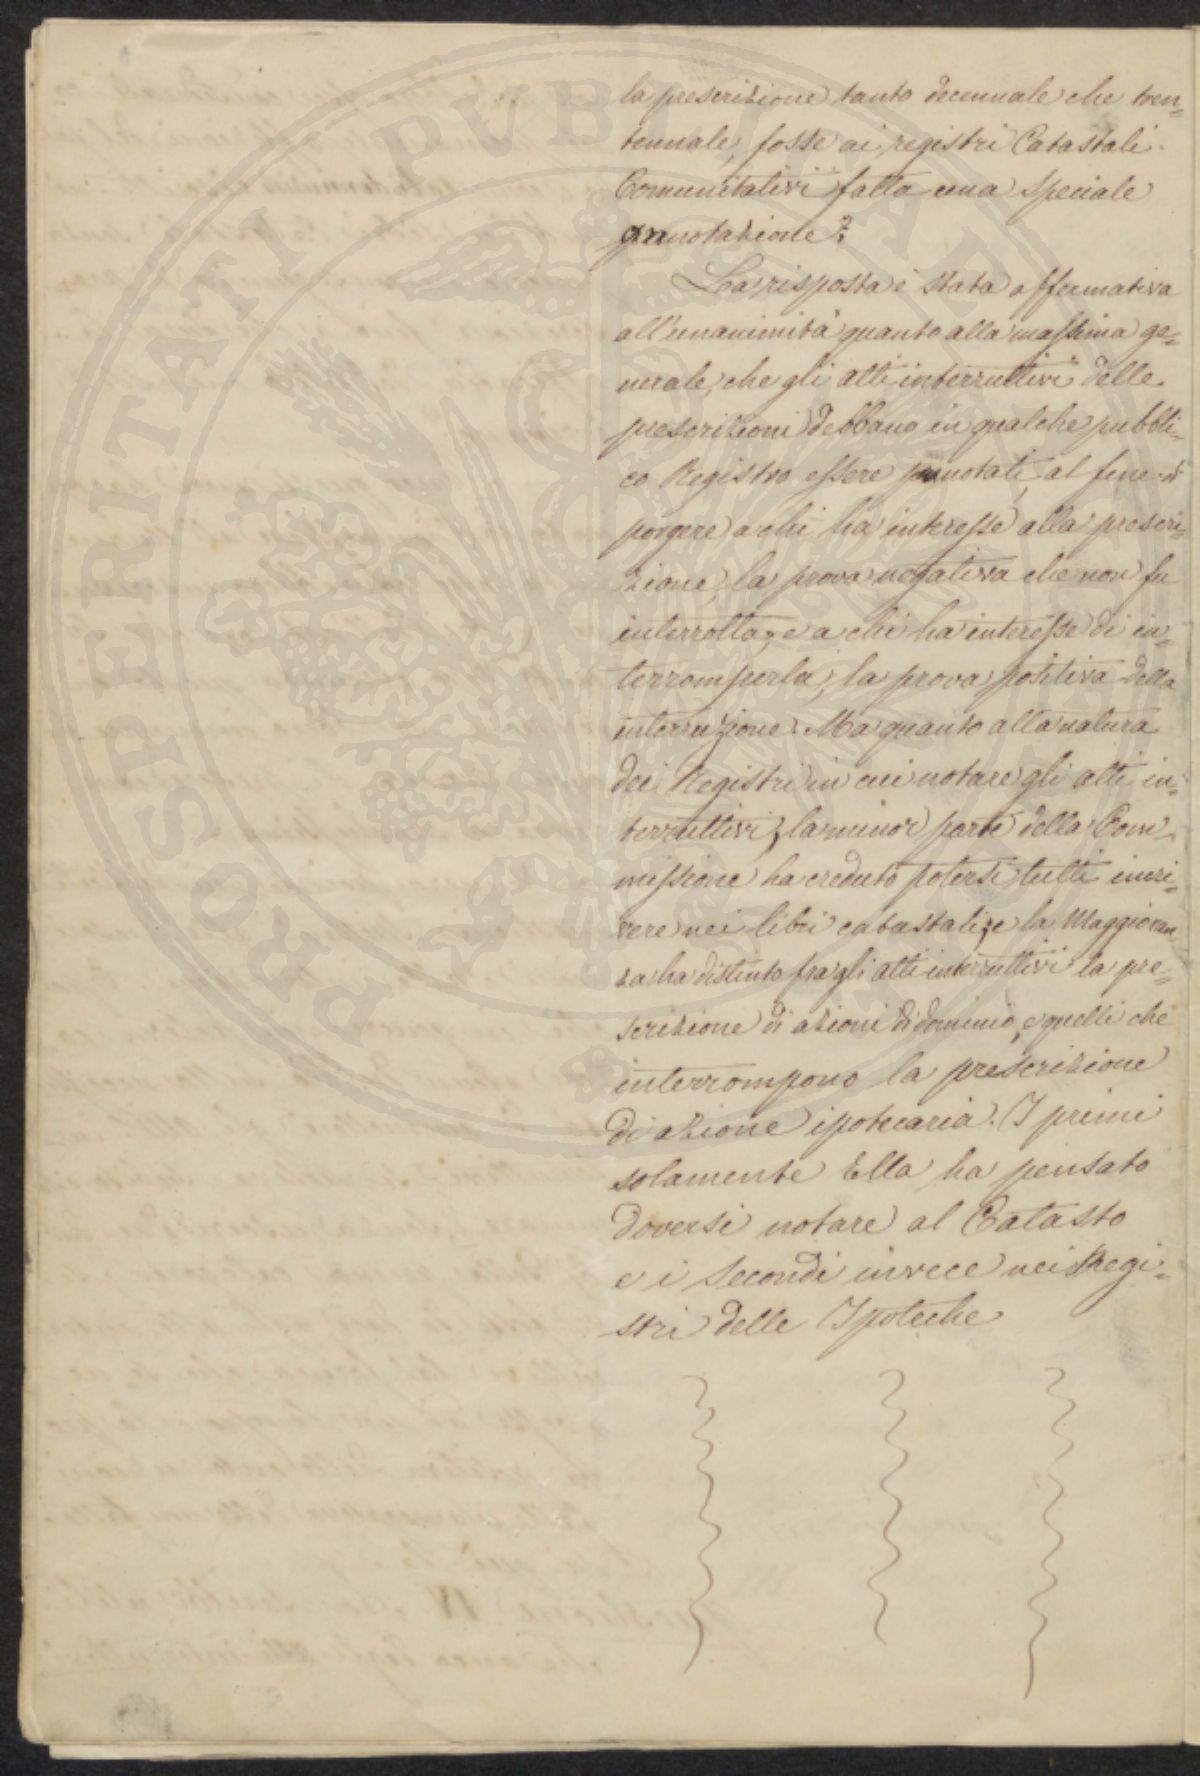 la prescrizione tanto decennale che tren=
tennale, fosse ai registri Catastali
Comunitativi fatta una speciale
annotazione?
La risposta è stata affermativa
all'unanimità quanto alla massima ge=
nerale, che gli atti interruttivi delle
prescrizioni debbano in qualche pubbli=
co Registro essere annotati, al fine di
porgere a chi ha interesse alla prescri=
zione, la prova negativa che non fu
interrotta, e a chi ha interesse di in=
terromperla, la prova positiva della
interruzione. Ma quanto alla natura
dei Registri in cui notare gli atti in=
terruttivi, la minor parte della Com=
missione ha creduto potersi tutti inscri=
vere nei libri catastali, e la Maggioran=
za ha distinto fra gli atti interruttivi la pre=
scrizione di azioni di dominio, e quelli che
interrompono la prescrizione
di azione ipotecaria. I primi
solamente Ella ha pensato
doversi notare al Catasto
e i secondi invece nei Regi=
stri delle Ipoteche
PROSPERITATI PVBLICAE